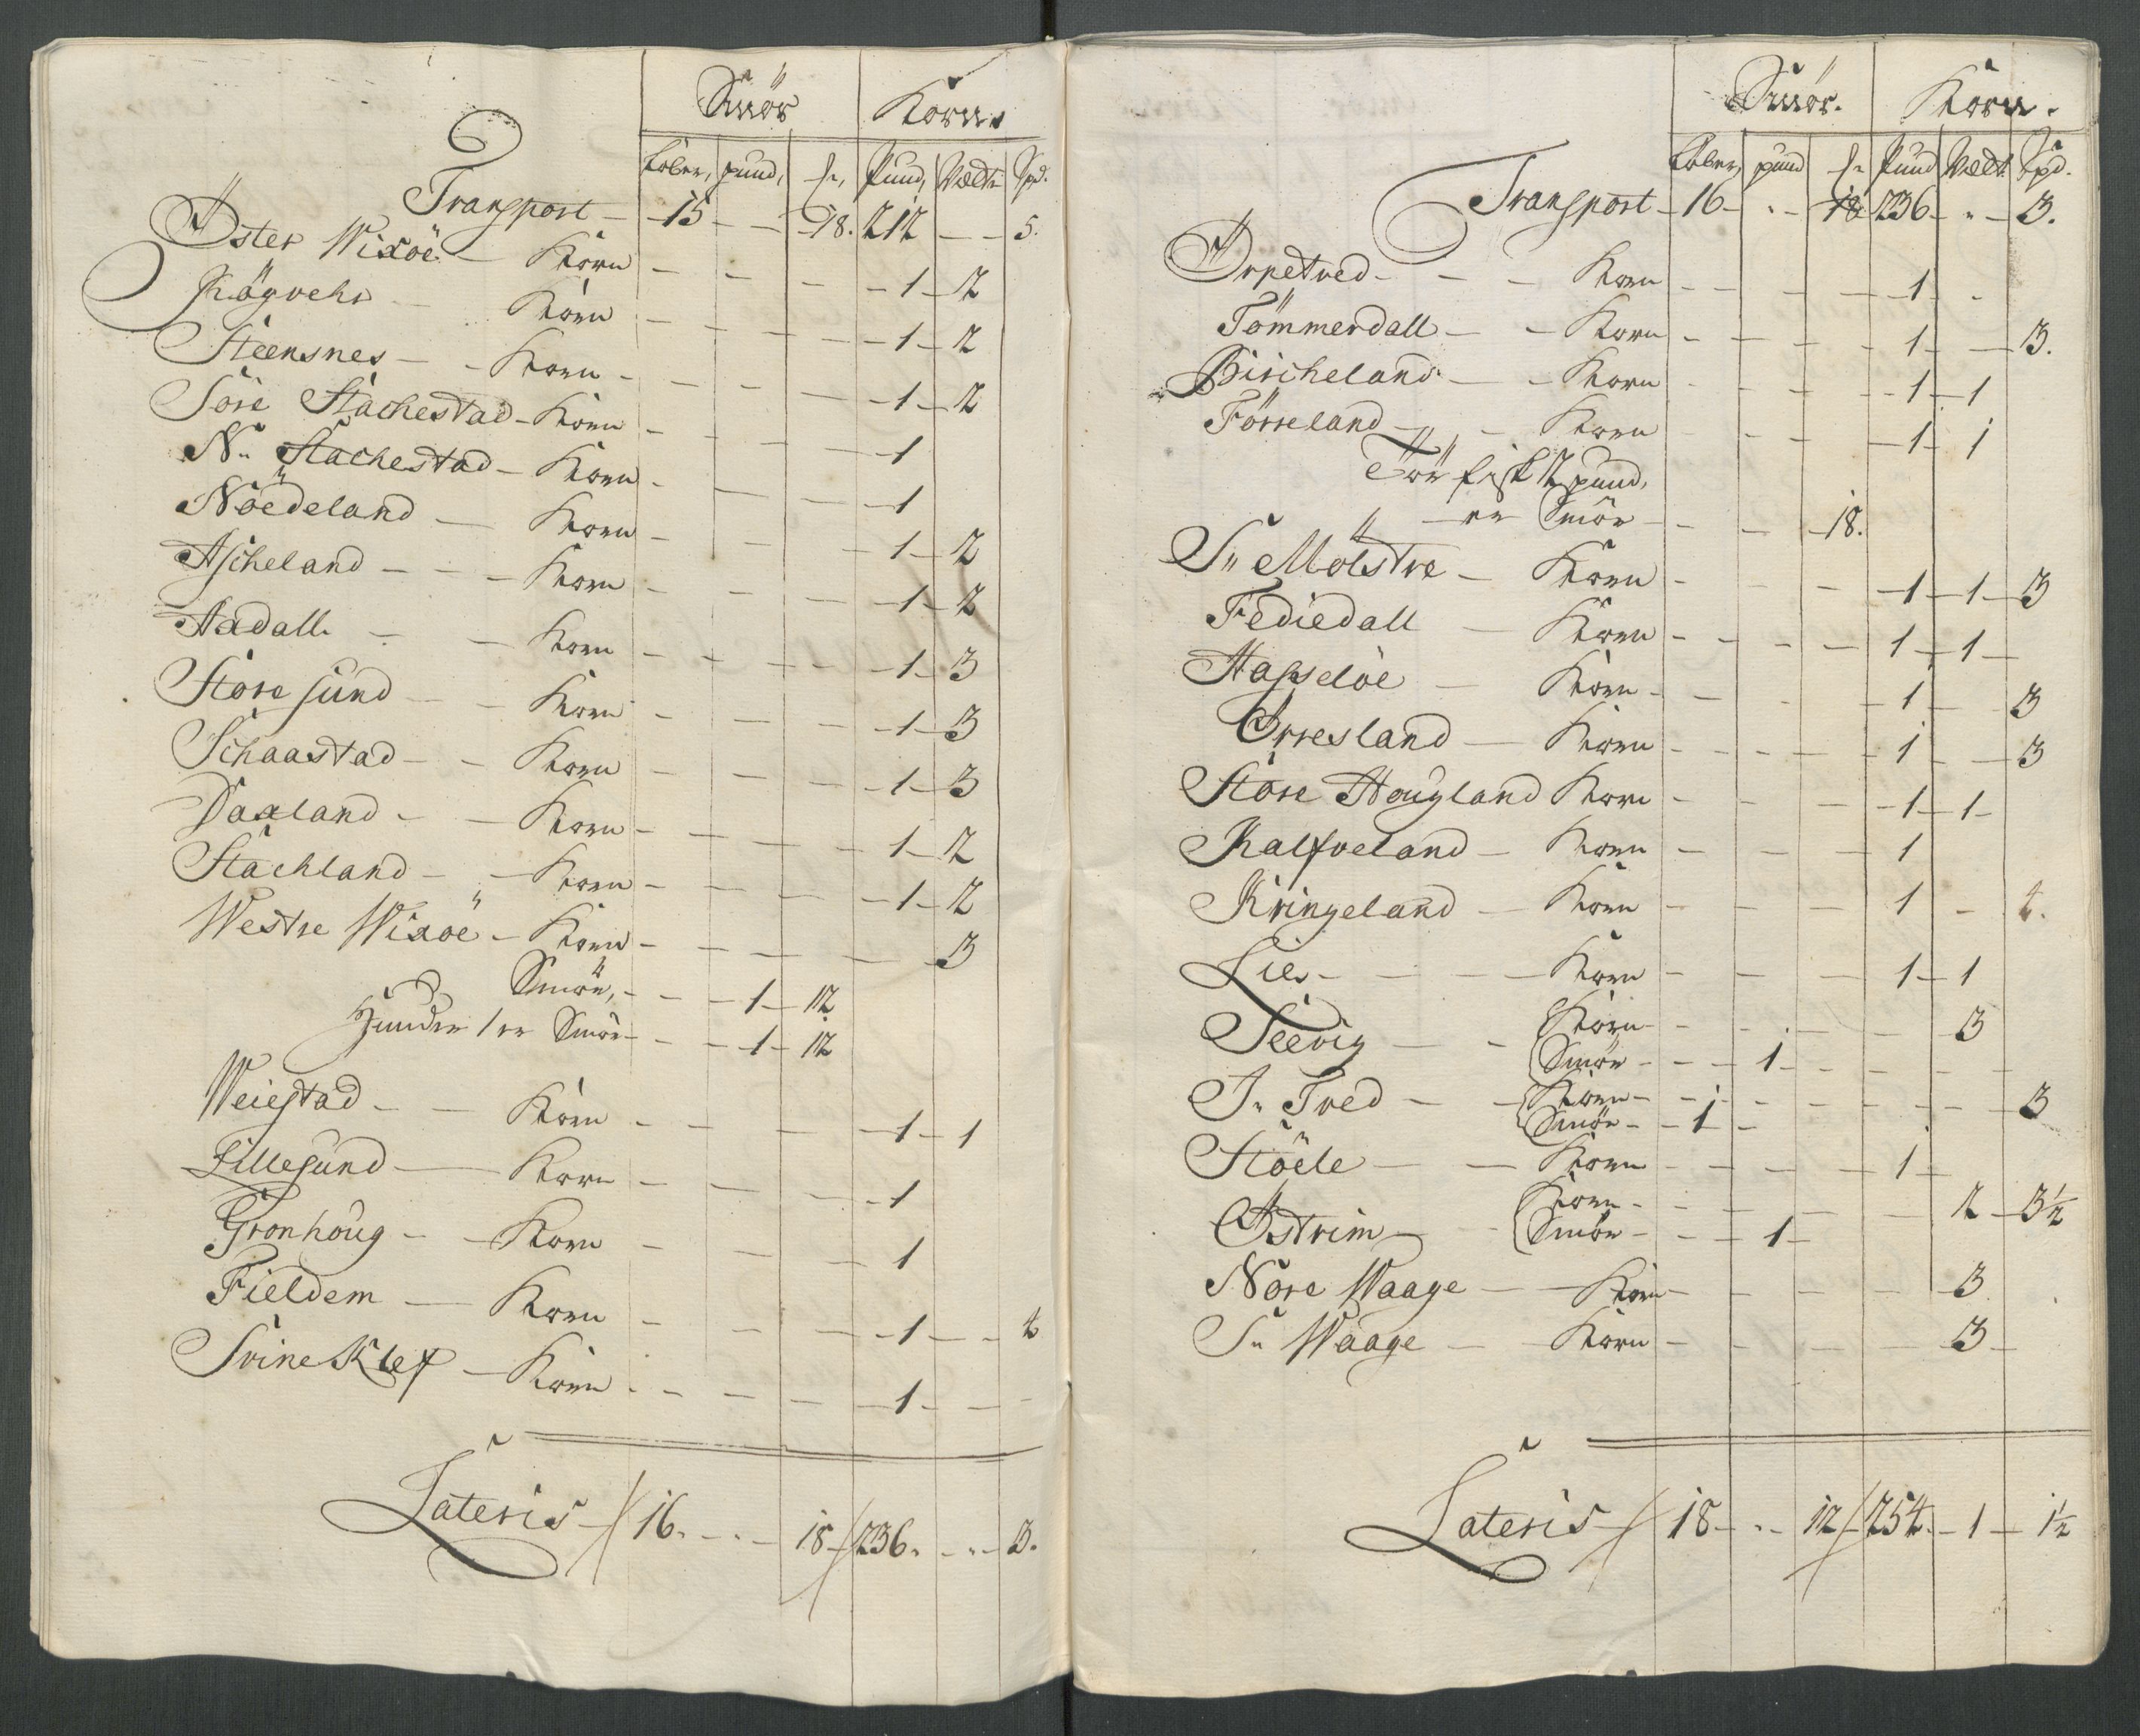 Smör Korn.
Löber, pund, Pund, Vædt Spd.
Transport - 15 - - 18. 212 - - 5.
Öster Wixöe - Korn - - - 1 - 2
Korn - - - 1 - 2
Steensnes - - Korn - - - 1 - 2
Söre Stachestad - Korn - - - 1
N. Stachestad - Korn - - - 1
Nöedeland - Korn - - - 1 - 2
Ascheland - - - Korn - - - 1 - 2
Aadall - - Korn - - - 1 - 3
Store sund - - Korn - - - 1 - 3
Schaastad - - Korn - - - 1 - 3
Daaland - - Korn - - - 1 - 2
Stachland - - Korn - - - 1 - 2
Westre Wixöe - Korn - - - - 3
Smör, - - 1 - 12
Smör - - 1 - 12
Weiestad - - Korn - - - 1 - 1
Lillesund - Korn - - - 1
Gronhoug - - Korn - - - 1
Fieldem - Korn - - - 1 - - 4
Svine Klef - Korn - - - 1 - -
Lateris - 16. - - 18 - 236. - - 3.
Smör. Korn.
Löber, pund Pund Vædt. Spd.
Transport - 16 - - 18 236 - - 3.
Korn - - - 1 -
Tömmerdall - - Korn - - - 1 - - 3.
Bircheland - - Korn - - - 1 - 1
Förreland - - Korn - - - 1 - 1
Tör fisk 2 pund,
Smör - - 18.
S. Molstre - Korn - - - 1 - 1 - 3
Fediedall - Korn - - - 1 - 1 -
Hasselöe - Korn - - - 1 - - 3
Orresland - Korn - - - 1 - - 3
Store Hougland Korn - - - 1 - 1 -
Kalfveland - Korn - - - 1
Kringeland - Korn - - - 1 - 4.
Lie - - - Korn - - - 1 - 1
Seevig - - Korn - - - - 3
Smör - - - 1 - - - -
I. Tved - - Korn - - - - - - 3
Smör - - 1 -
Stöele - - Korn - - - 1 -
Östrim - - Korn - - - - 2 - 3½
Smör - - - 1 -
Nore Waage - - Korn - - - - 3
S. Waage - - Korn - - - - 3 -
Lateris - 18 - - 12 - 254. - 1 - 1½